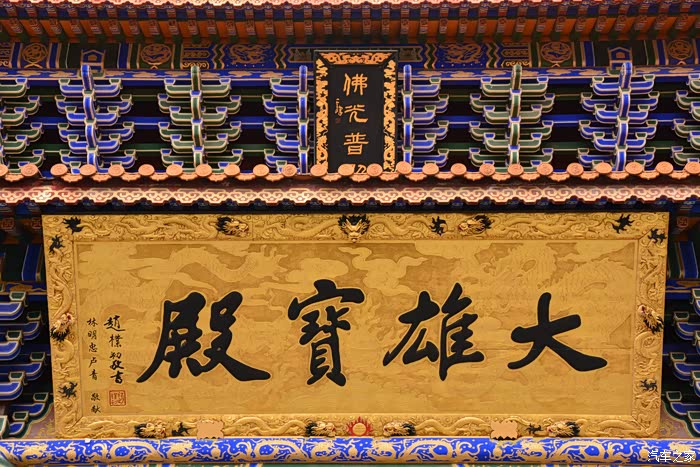 佛光普
大雄寶殿
趙樸初敬書
林明忠卢青 敬献
汽车之家